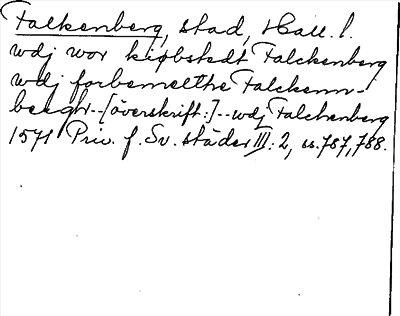 Falkenberg, stad, Hall. l.
wdj wor kiøbstedt Falckenberg
wdj forbemelthe Falckenn-
berghr--[överskrift:]--wdj Falchenberg
1571 Priv. f. Sv. städer III: 2, s. 787, 788.